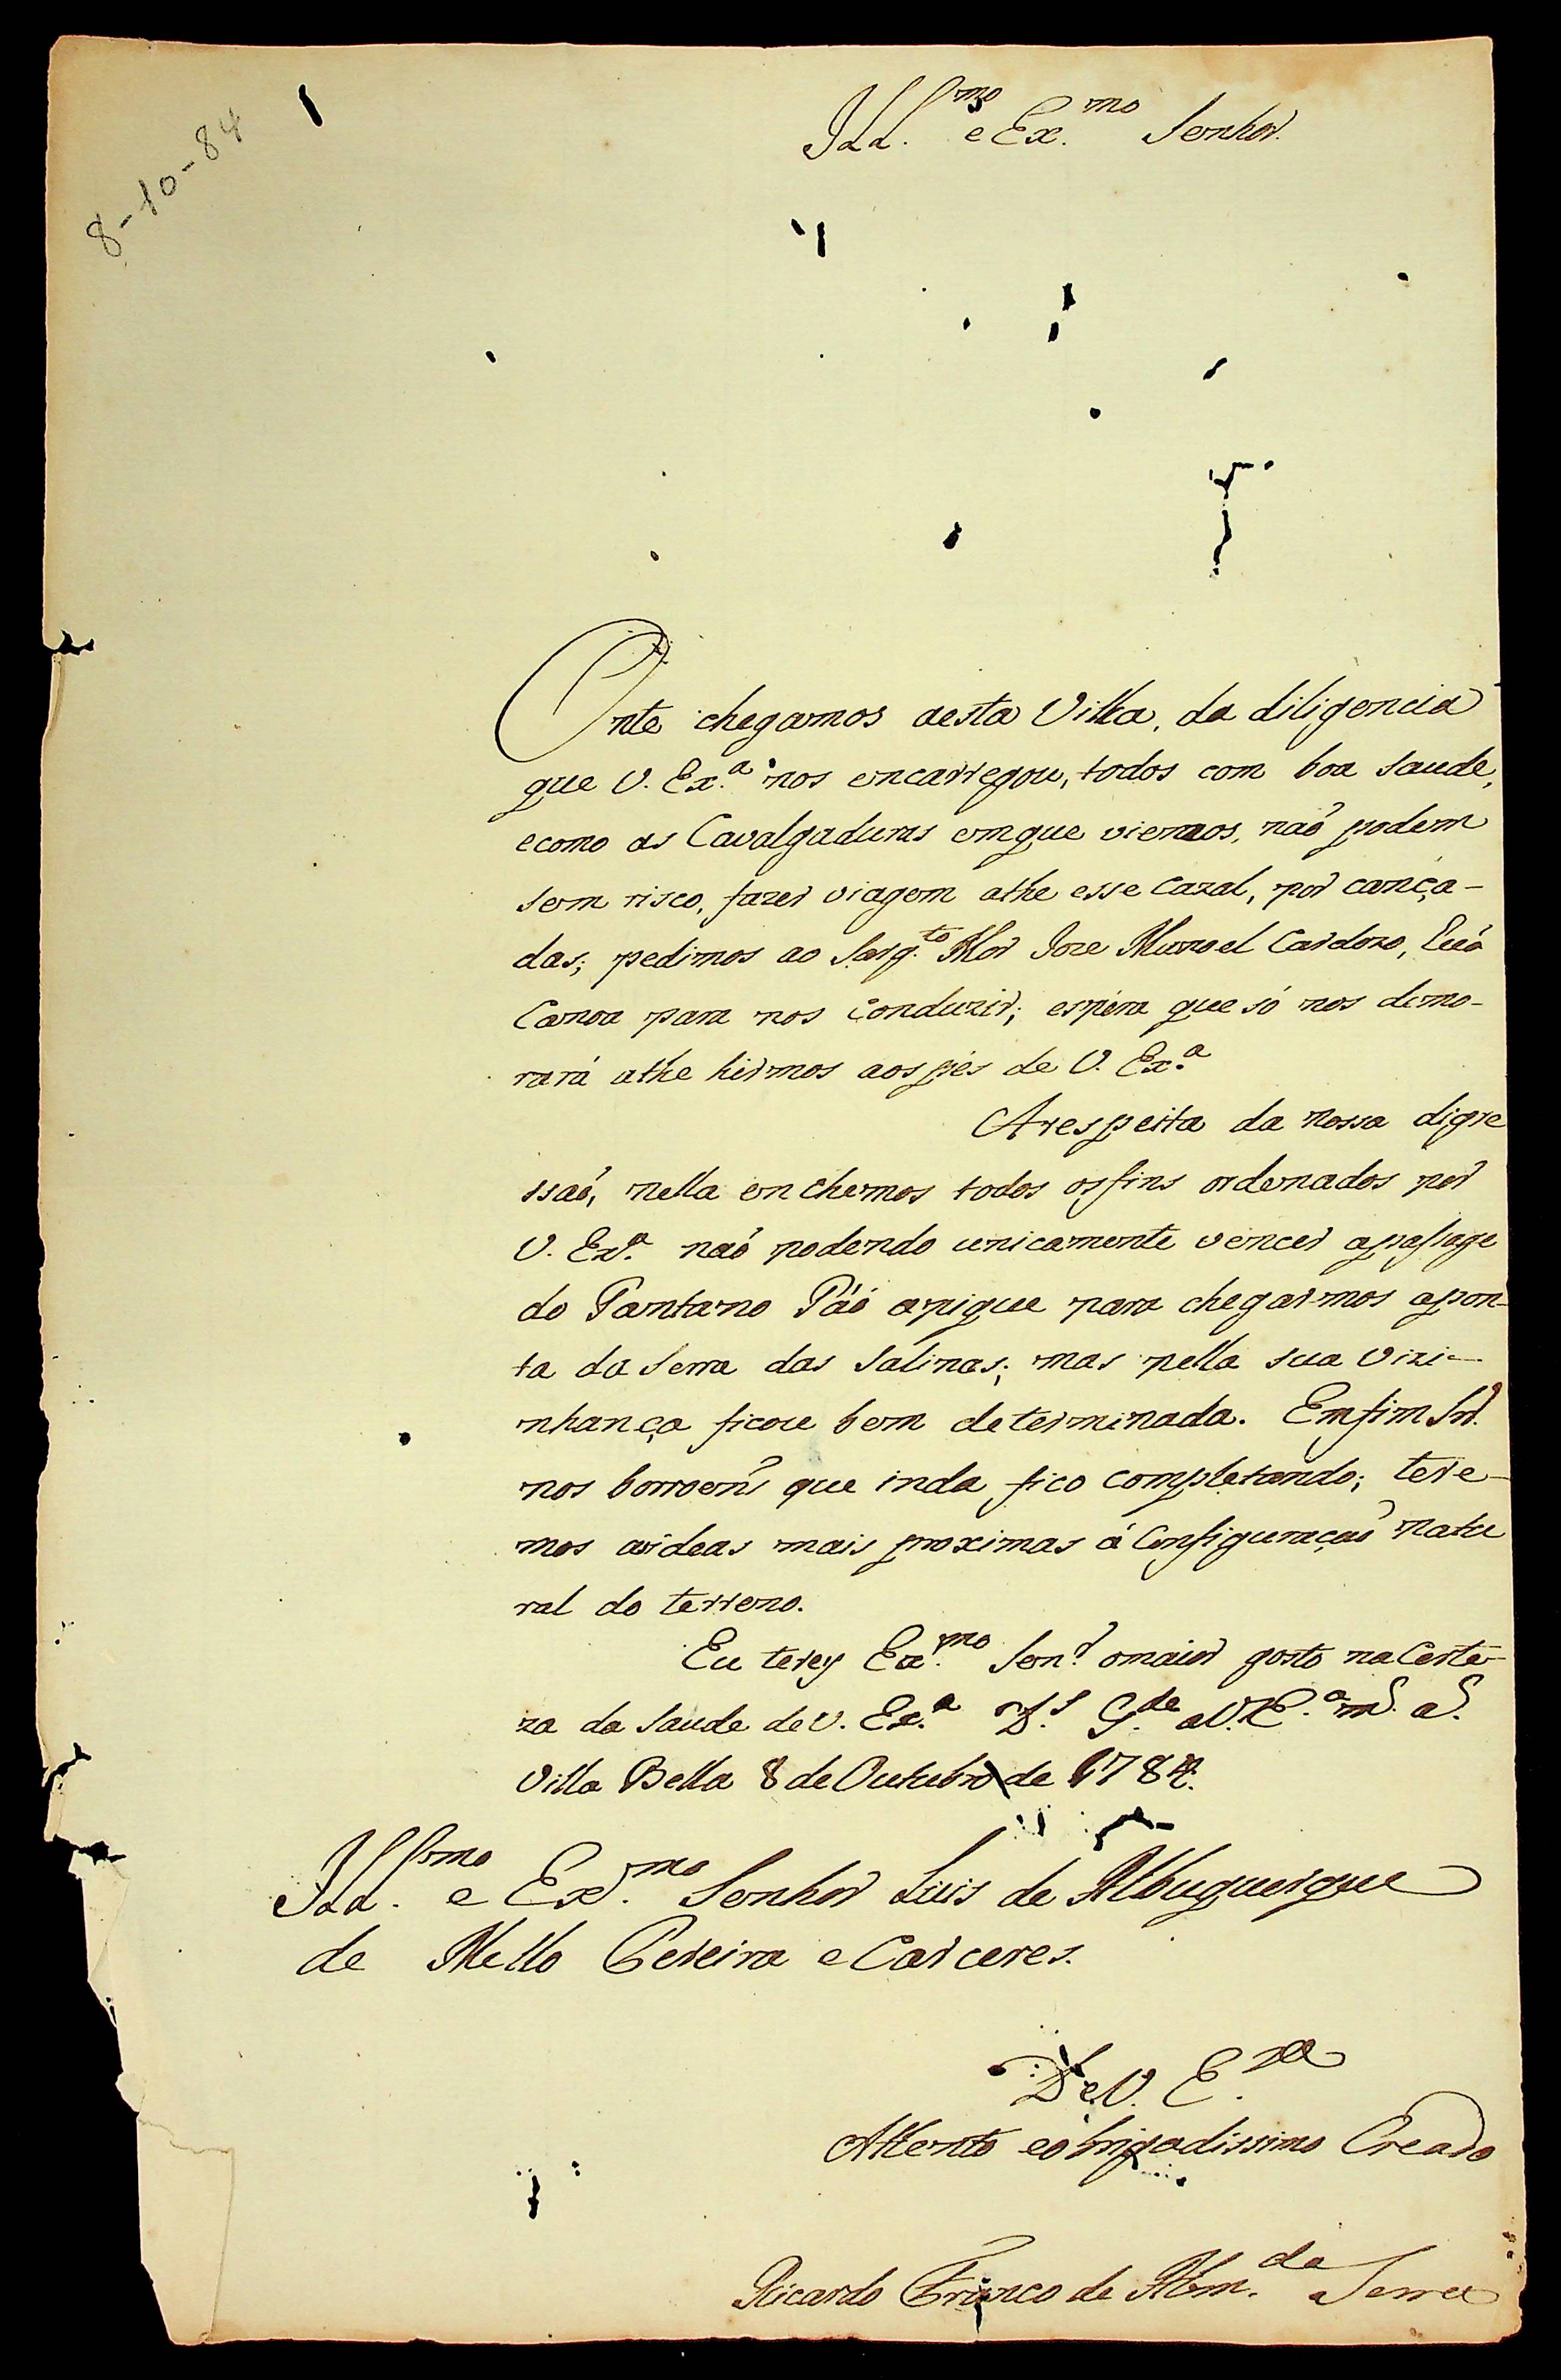 8-10-84
Ill.mo e Ex.mo Senhor.
Onte chegamos aesta Villa, da diligencia
que V. Ex.a nos encarregou, todos com boa saude,
ecomo as Cavalgaduras emque viemos, naõ podem
sem risco, fazer viagem athe esse Cazal, por cança-
das; pedimos ao Sarg.to Mor Joze Manoel Cardozo, huã
Canoa para nos conduzir; espera que só nos demo-
rará athe hirmos aos pés de V. Ex.a
Arespeita da nossa digre
ssaõ, nella enchemos todos osfins ordenados por
V. Ex.a naõ podendo unicamente vencer apassage
do Pantano Páó apique para chegarmos apon-
ta da Serra das Salinas; mas pella sua vizi-
nhança ficou bem determinada. Emfim Sr.
nos borroens que inda fico completando; tere-
mos asideas mais proximas á Configuraçaõ natu
ral do terreno.
Eu terey Ex.mo Senr. omaior gosto na Certe-
za da Saude de V. Ex.a D.s G.de a V. E.a m.s a.s
Villa Bella 8 de Outubro de 1784.
Ill.mo e Ex.mo Senhor Luis de Albuquerque
de Mello Pereira e Carceres.
De V. E.xa
Attento eobrigadissimo Creado
Ricardo Franco de Alm.da Serra